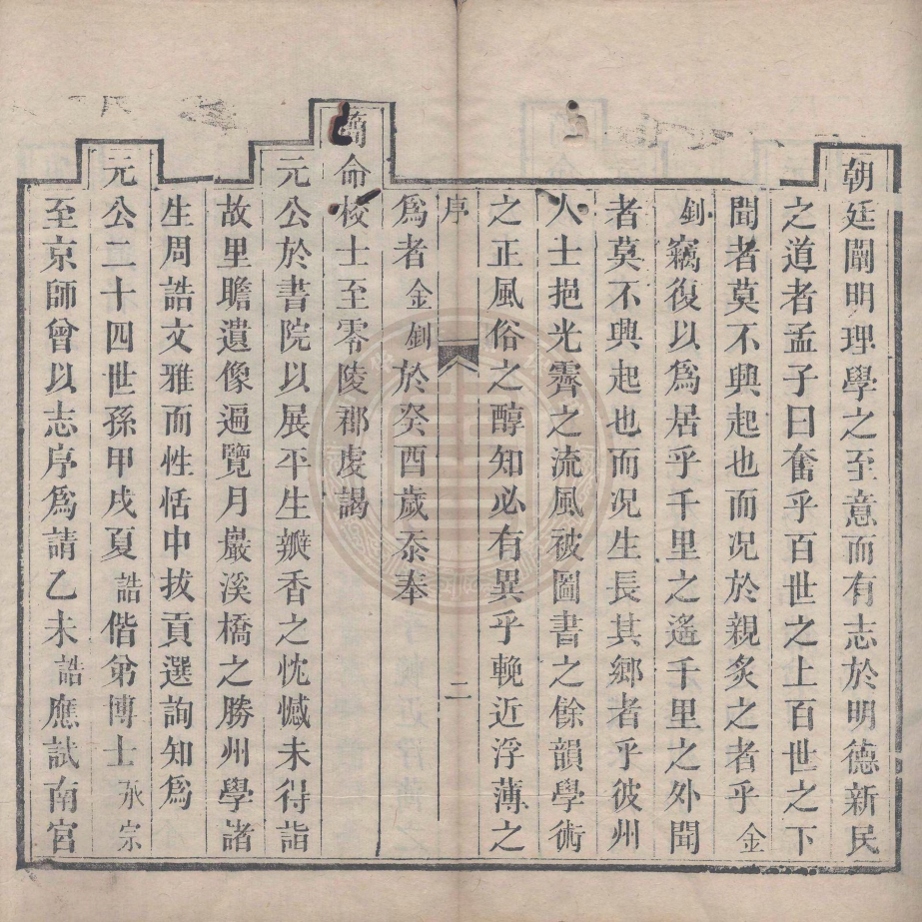 朝廷闡明理學之至意而有志於明德新民
之道者孟子曰奮乎百世之上百世之下
聞者莫不興起也而况於親炙之者乎金
釗竊復以爲居乎千里之遙千里之外聞
者莫不興起也而况生長其鄉者乎彼州
人士挹光霽之流風被圖書之餘韻學術
之正風俗之醇知必有異乎輓近浮薄之
序 二
爲者金釗於癸酉歲忝奉
簡命校士至零陵郡虔謁
元公於書院以展平生瓣香之忱憾未得詣
故里瞻遺像遍覽月巖溪橋之勝州學諸
生周誥文雅而性恬中拔貢選詢知爲
元公二十四世孫甲戌夏誥偕弟博士承宗
至京師曾以志序爲請乙未誥應試南宮